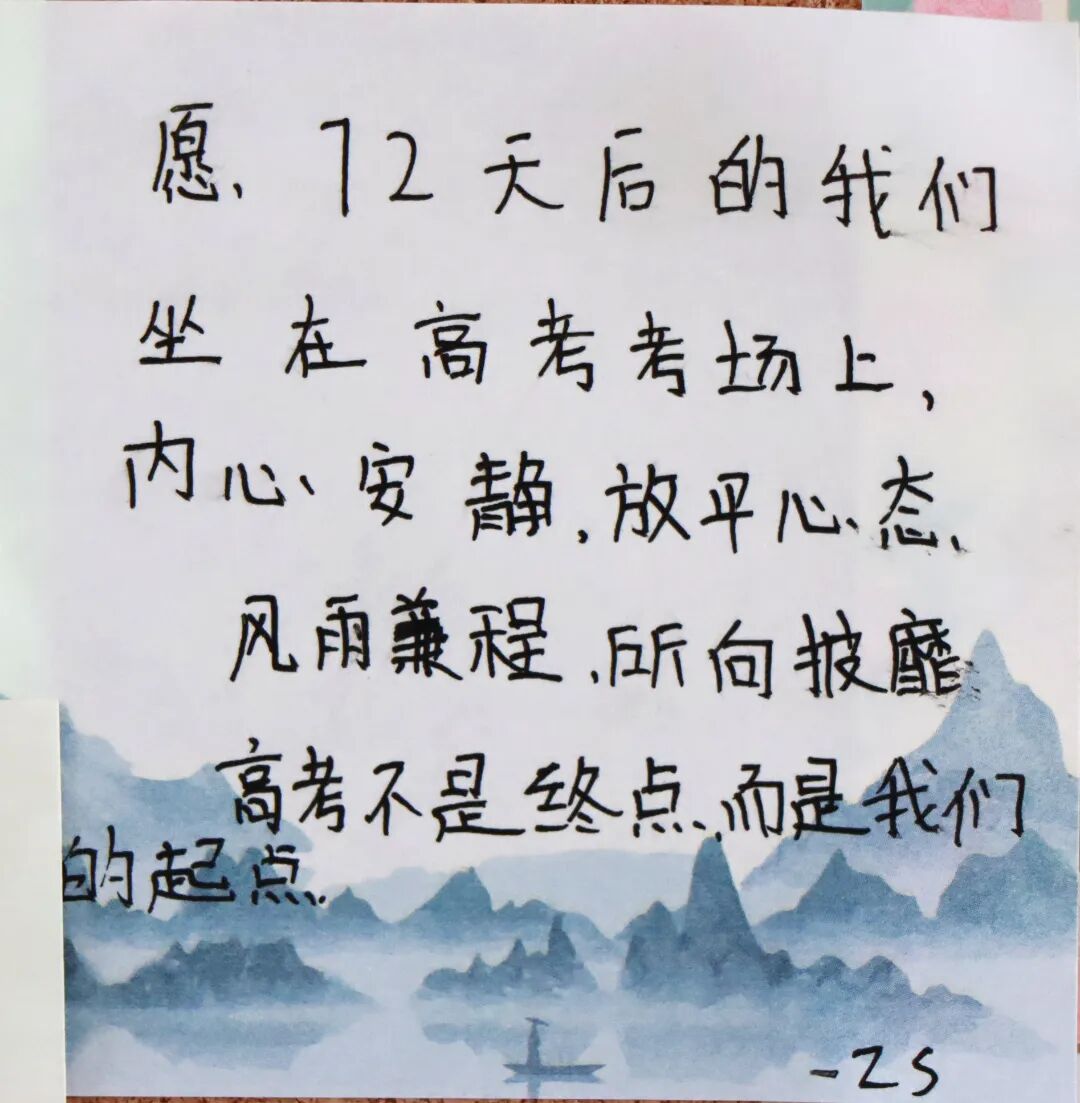 愿72天后的我们
坐在高考考场上，
内心安静，放平心态，
风雨兼程，所向披靡
高考不是终点，而是我们
的起点.
-ZS